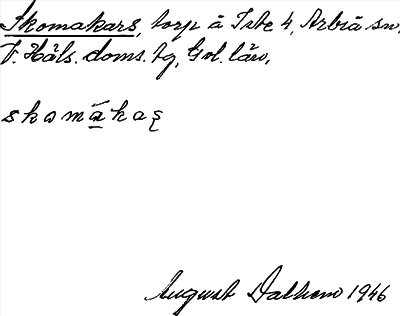 Skomakars, torp å Iste 4, Arbrå sn,
V. Häls. doms. tg, Gvl. län,
skomákaʂ
August Dalhem 1946